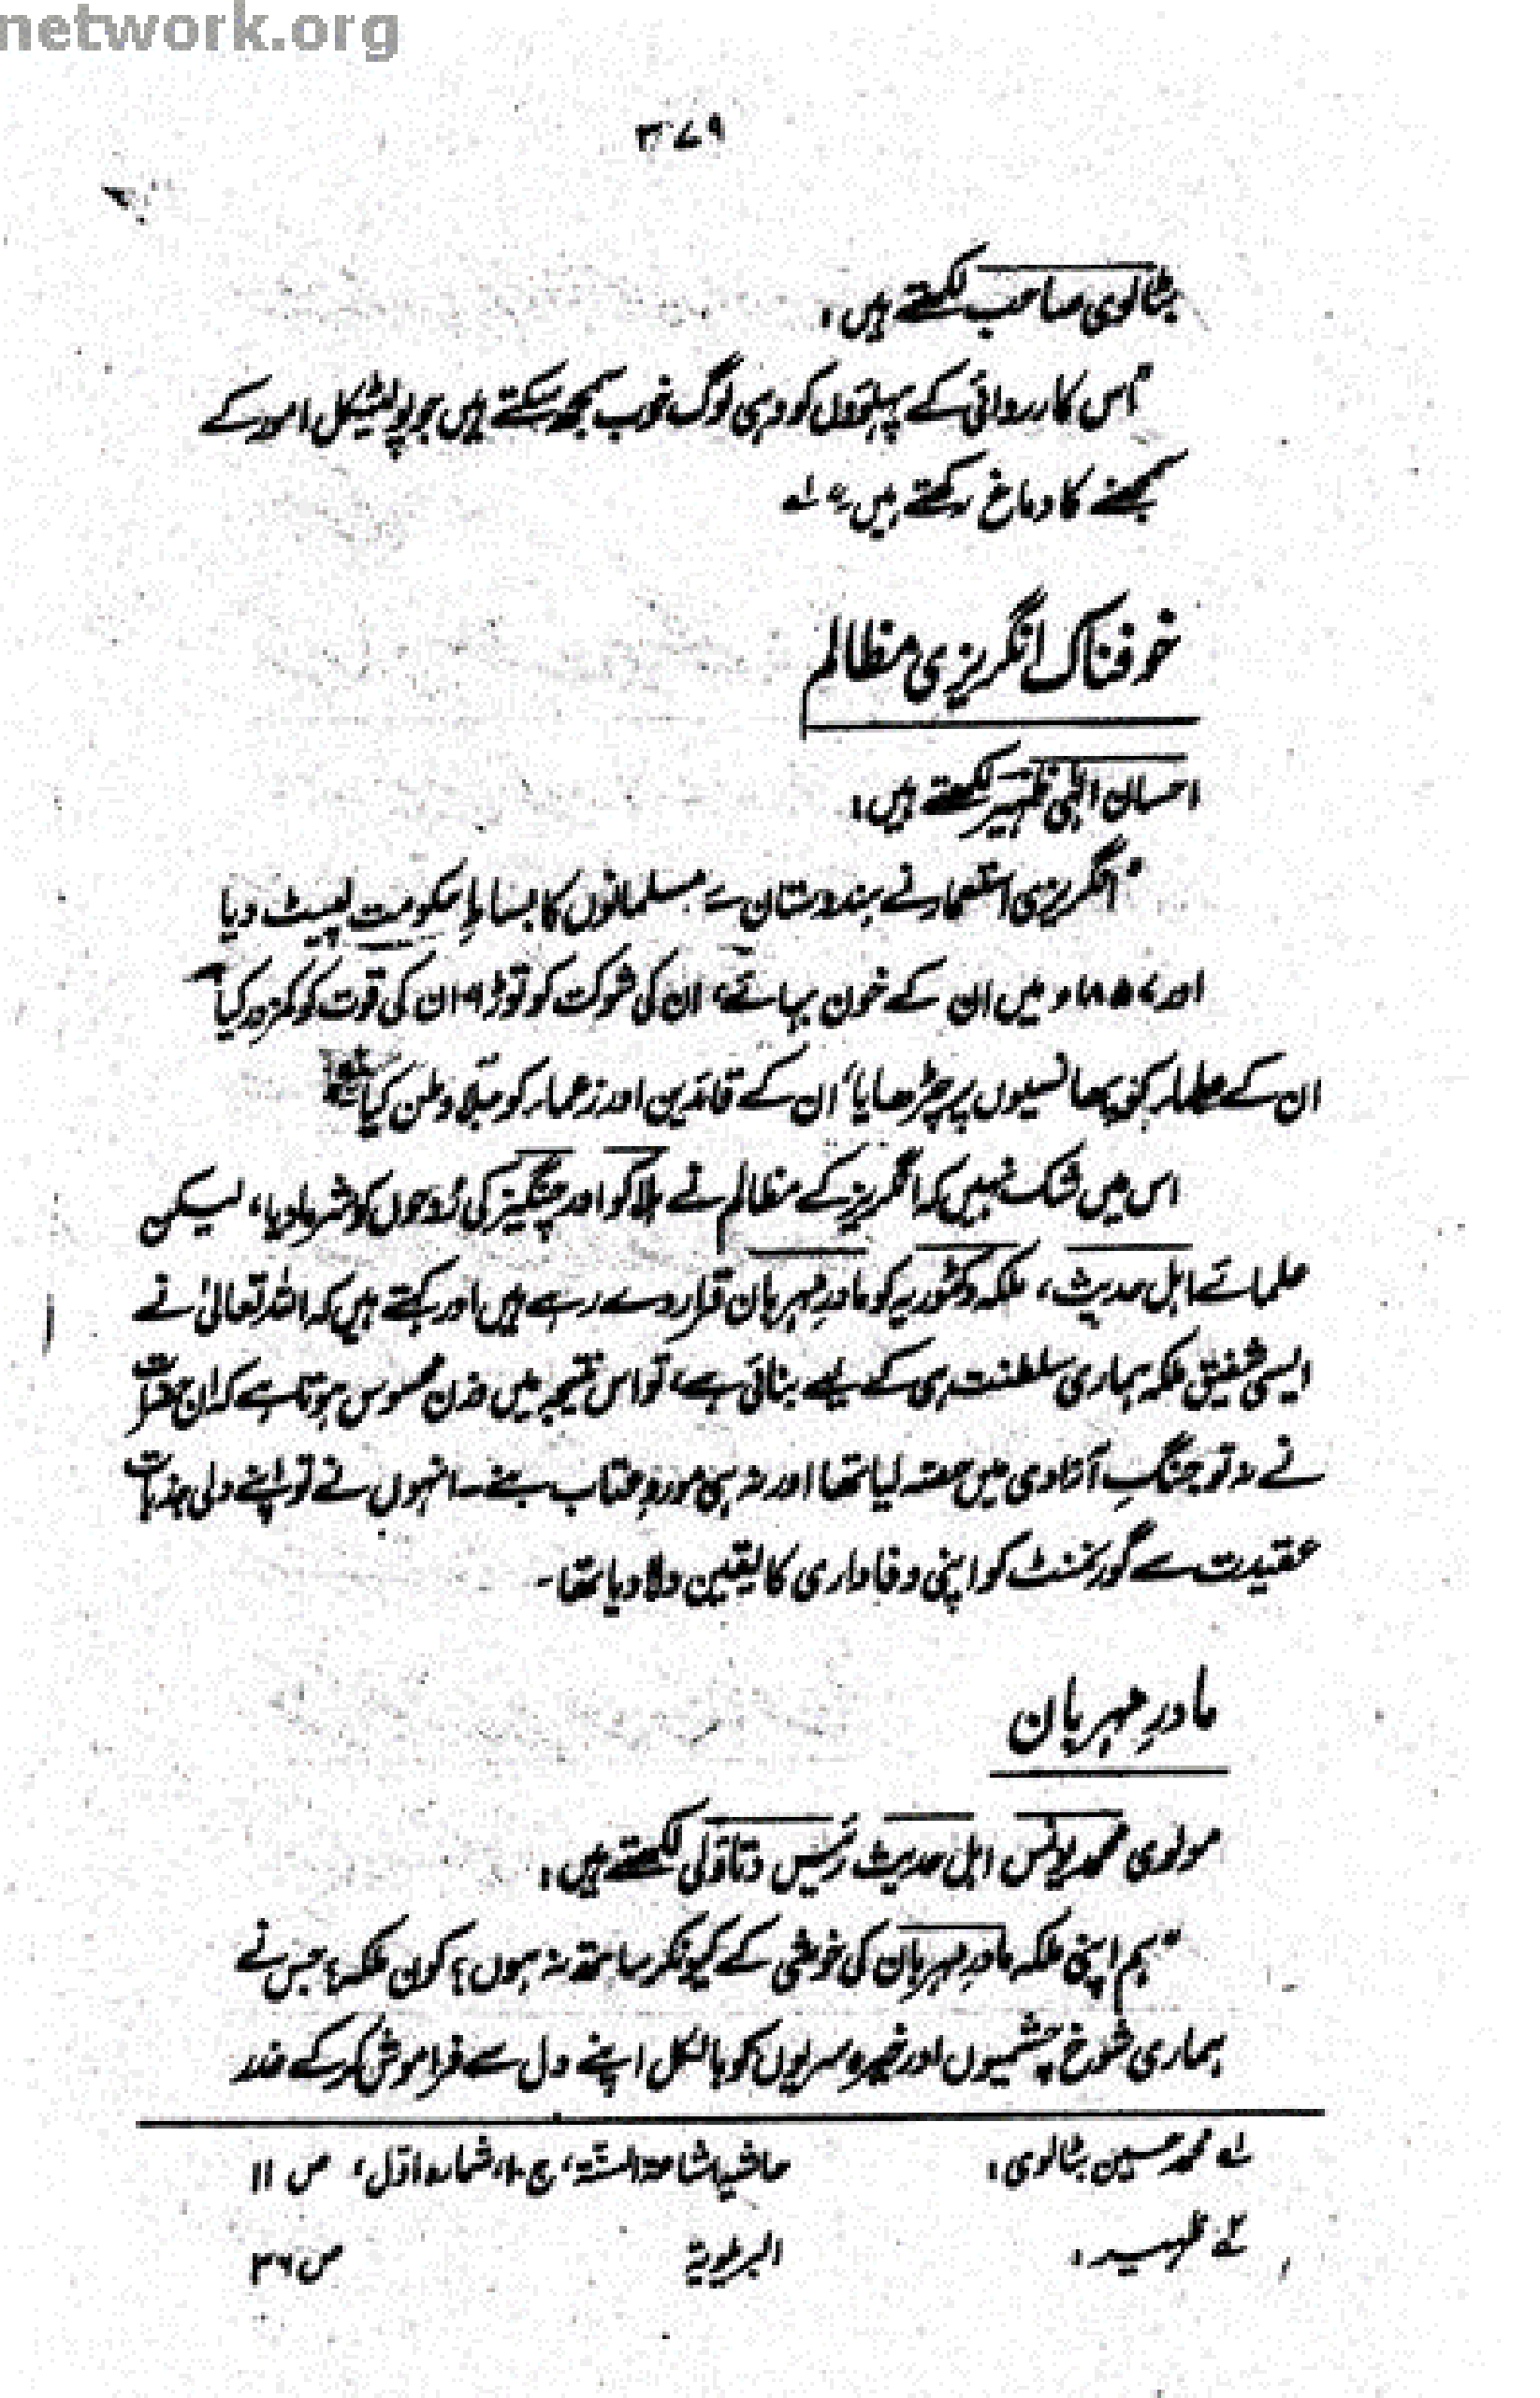 network.org
۳۷۹
بٹالوی صاحب لکھتے ہیں:
"اس کارروائی کے پہلوؤں کو وہی لوگ خوب سمجھ سکتے ہیں جو پولیٹیکل امور کے
سمجھنے کا دماغ رکھتے ہیں" لہ
خوفناک انگریزی مظالم
احسان الٰہی ظہیر لکھتے ہیں:
"انگریزی استعمار نے ہندوستان سے مسلمانوں کا بساطِ حکومت لپیٹ دیا
اور ۱۸۵۷ء میں ان کے خون بہائے، ان کی شوکت کو توڑا، ان کی قوت کو کمزور کیا
ان کے علماء کو پھانسیوں پر چڑھایا، ان کے قائدین اور زعماء کو جلا وطن کیا
اس میں شک نہیں کہ انگریز کے مظالم نے ہلاکو اور چنگیز کی رُوحوں کو شرما دیا، لیکن
علمائے اہل حدیث، ملکہ وکٹوریہ کو مادرِ مہربان قرار دے رہے ہیں اور کہتے ہیں کہ اللہ تعالیٰ نے
ایسی شفیق ملکہ ہماری سلطنت ہی کے لیے بنائی ہے، تو اس نتیجہ میں وزن محسوس ہوتا ہے کہ ان حضرات
نے نہ تو جنگِ آزادی میں حصہ لیا تھا اور نہ ہی موردِ عتاب بنے۔ انہوں نے تو اپنے دلی جذبات
عقیدت سے گورنمنٹ کو اپنی وفاداری کا یقین دلا دیا تھا۔
مادرِ مہربان
مولوی محمد یونس اہل حدیث رئیس دتاؤلی لکھتے ہیں:
"ہم اپنی ملکہ مادرِ مہربان کی خوشی کے کیونکر ساتھ نہ ہوں؟ کون ملکہ؟ جس نے
ہماری شوخ چشمیوں اور خیرہ سریوں کو بالکل اپنے دل سے فراموش کر کے غدر
لہ محمد حسین بٹالوی: حاشیہ اشاعۃ السنۃ، ج ۱۰، شمارہ اوّل، ص ۱۱
لہ ظہیر: البریلویۃ ص ۳۶